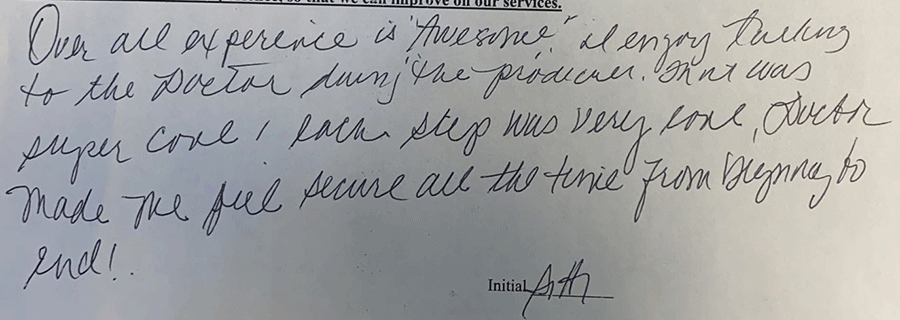 so that we can improve on our services.
Over all experience is "Awesome" I enjoy Talking
to the Doctor during the producer. That was
super cool! each step was very cool, Doctor
made me feel secure all the time from Beginning to
end!.
Initial